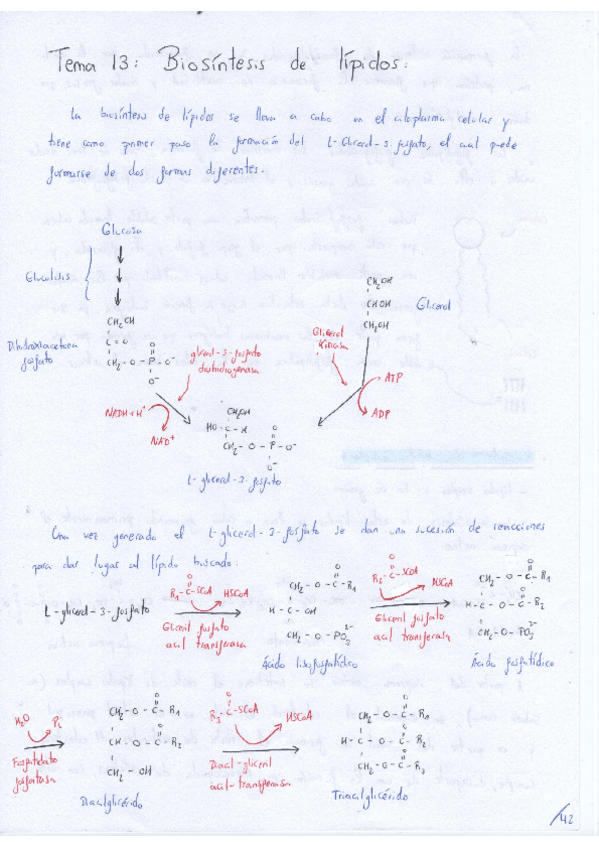 Tema 13: Biosíntesis de lípidos:
La biosíntesis de lípidos se lleva a cabo en el citoplasma celular y
tiene como primer paso la formación del L-Glicerol-3-fosfato, el cual puede
formarse de dos formas diferentes.
Glucosa
Glucolisis
CH2OH
CHOH
CH2OH
Glicerol
CH2OH
C=O
CH2-O-P-O-
O
O-
Dihidroxiacetona
fosfato
glicerol-3-fosfato
deshidrogenasa
Glicerol
Kinasa
ATP
ADP
NADH+H+
NAD+
CH2OH
HO-C-H
CH2-O-P-O-
O
O-
L-glicerol-3-fosfato
Una vez generado el L-glicerol-3-fosfato se dan una sucesión de reacciones
para dar lugar al lípido buscado:
L-glicerol-3-fosfato
O
R1-C-SCoA
HSCoA
Gliceril fosfato
acil transferasa
O
CH2-O-C-R1
H-C-OH
CH2-O-PO3 2-
Ácido lisofosfatídico
O
R2-C-SCoA
HSCoA
Gliceril fosfato
acil transferasa
O
CH2-O-C-R1
O
H-C-O-C-R2
CH2-O-PO3 2-
Ácido fosfatídico
H2O
Pi
Fosfatidato
fosfatasa
O
CH2-O-C-R1
O
CH-O-C-R2
CH2-OH
Diacilglicérido
O
R3-C-SCoA
HSCoA
Diacil-gliceril
acil-transferasa
O
CH2-O-C-R1
O
H-C-O-C-R2
O
CH2-O-C-R3
Triacilglicérido
/42